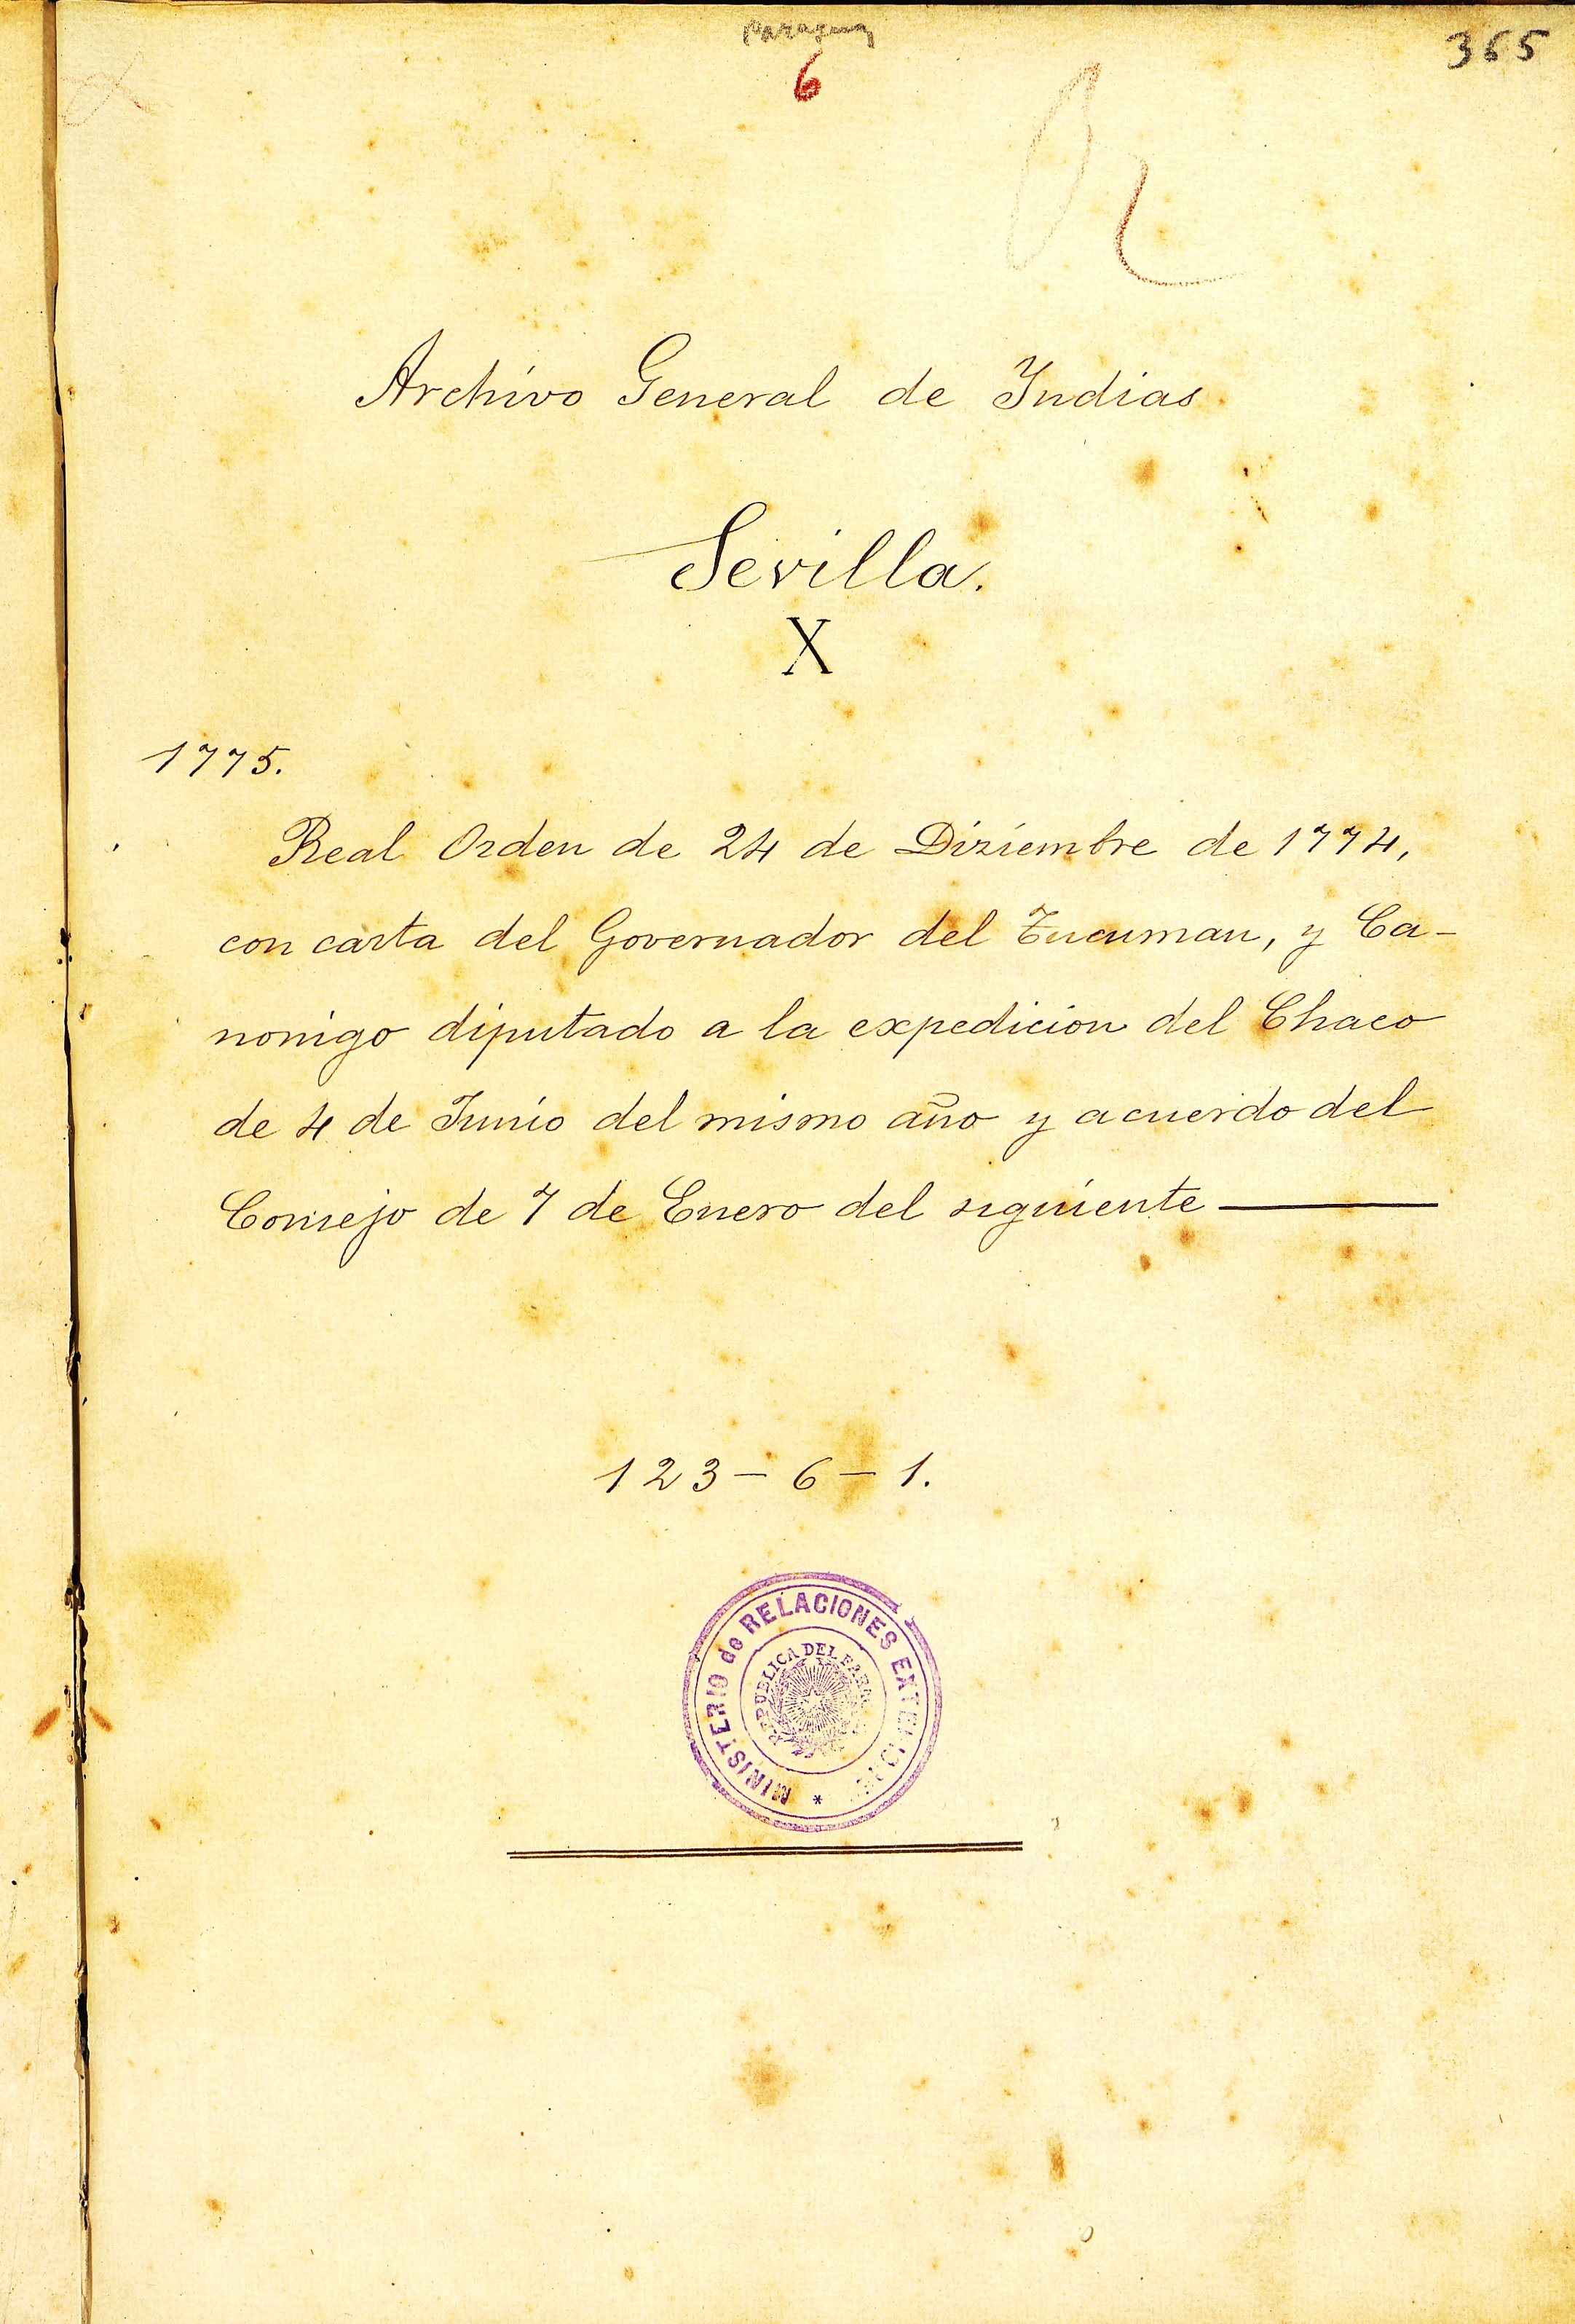 Paraguay
6
365
Archivo General de Indias
Sevilla.
X
1775.
Real Orden de 24 de Diziembre de 1774,
con carta del Governador del Tucuman, y Ca-
nonigo diputado a la expedicion del Chaco
de 4 de Junio del mismo año y acuerdo del
Consejo de 7 de Enero del siguiente
123-6-1.
MINISTERIO de RELACIONES EXTERIORES
REPUBLICA DEL PARAGUAY
*